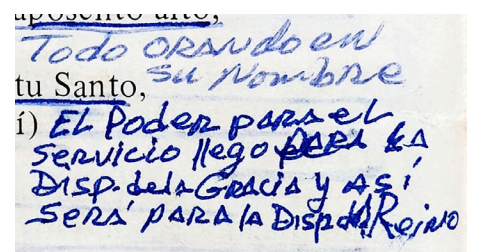 aposento alto,
Todo ORANDO en
su Nombre
tu Santo,
í) EL PodeR paRa el
seRvicio llego PARA LA
DISP. de la GRACIA y ASí
SeRá PARA la DISP. del Reino